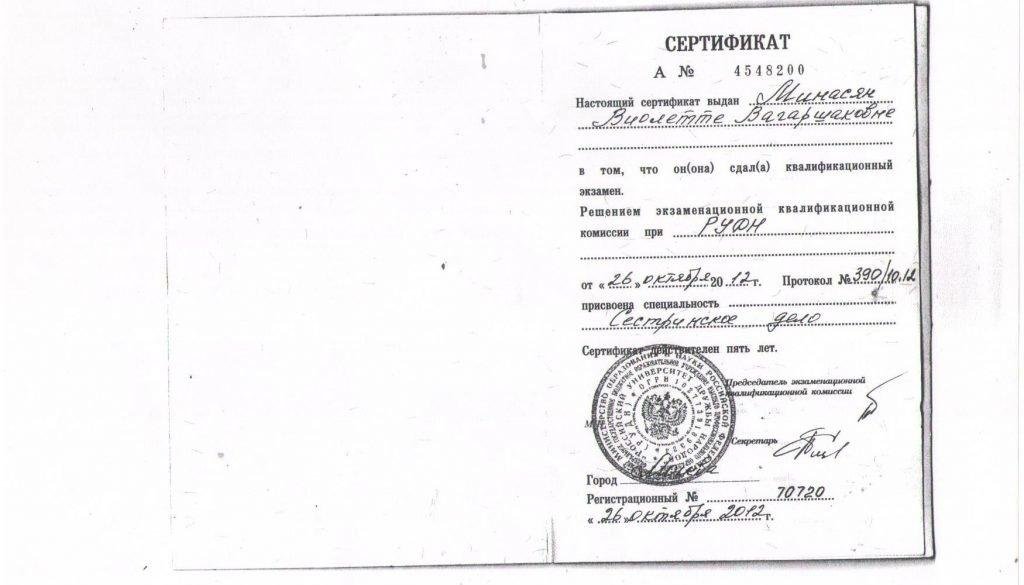 СЕРТИФИКАТ
А № 4548200
Настоящий сертификат выдан Минасян
Виолетте Вагаршаковне
в том, что он(она) сдал(а) квалификационный
экзамен.
Решением экзаменационной квалификационной
комиссии при РУДН
от « 26 » октября 20 12 г. Протокол № 390/10.12
присвоена специальность
Сестринское дело
Сертификат действителен пять лет.
Председатель экзаменационной
квалификационной комиссии
МИНИСТЕРСТВО ОБРАЗОВАНИЯ И НАУКИ РОССИЙСКОЙ ФЕДЕРАЦИИ
РОССИЙСКИЙ УНИВЕРСИТЕТ ДРУЖБЫ НАРОДОВ
Секретарь
Город
Регистрационный № 70720
« 26 » октября 2012 г.